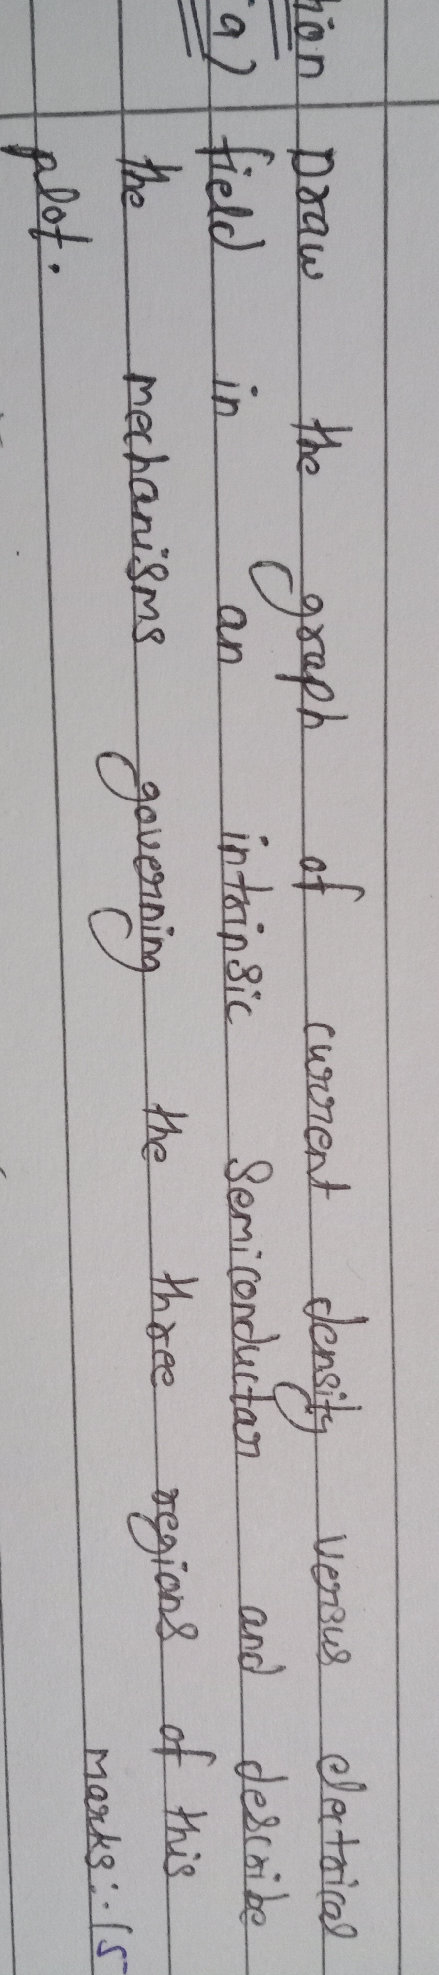 Draw the graph of current density versus electrical
a) field in an intrinsic semiconductor and describe
the mechanisms governing the three regions of this
plot.
Marks:- 15